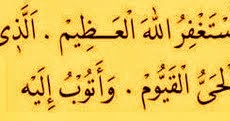 سْتَغْفِرُ اللهَ الْعَظِيْمَ . اَلَّذِى
لْحَيُّ الْقَيُّوْمُ . وَأَتُوْبُ إِلَيْهِ